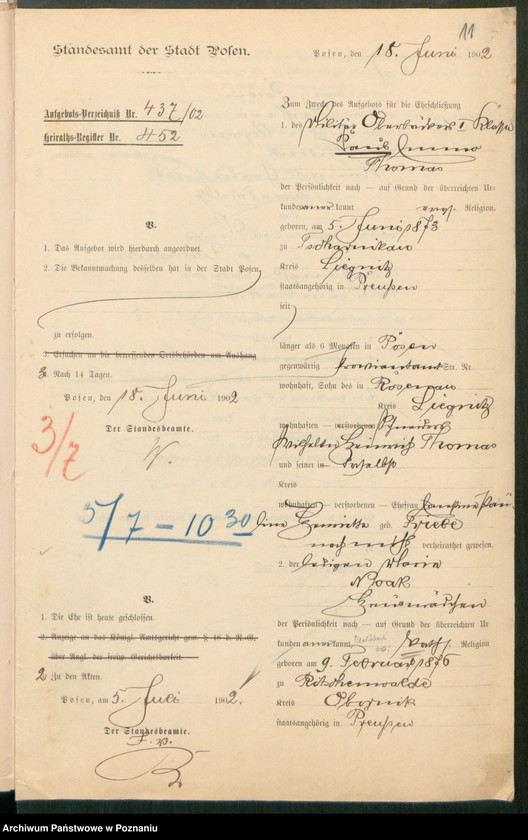 11
Standesamt der Stadt Posen.
Posen, den 18. Juni 1902
Aufgebots-Verzeichniß Nr. 437/02
Heiraths-Register Nr. 452
V.
1. Das Aufgebot wird hierdurch angeordnet.
2. Die Bekanntmachung desselben hat in der Stadt Posen
zu erfolgen.
3. Ersuchen an die betreffenden Ortsbehörden um Aushang
3. Nach 14 Tagen.
Posen, den 18. Juni 1902
Der Standesbeamte.
3/7
5/7 - 10 30
V.
1. Die Ehe ist heute geschlossen.
2. Anzeige an das Königl. Amtsgericht gem. § 18 d. R.G.
über Angl. der freiw. Gerichtsbarkeit
2 Zu den Akten.
Posen, am 5. Juli 1902.
Der Standesbeamte.
J. V.
Zum Zweck des Aufgebots für die Eheschließung
1. des Militär Oberbäckers I Klasse
Paul
Thomas
der Persönlichkeit nach — auf Grund der überreichten Ur-
kunden anerkannt evgl. Religion.
geboren, am 5. Juni 1873
zu Tscharnikau
Kreis Liegnitz
staatsangehörig in Preußen
seit
länger als 6 Monaten in Posen
gegenwärtig Proviantamt Str. Nr.
wohnhaft, Sohn des in Rosenau
Kreis Liegnitz
wohnhaften — verstorbenen
Wilhelm Heinrich Thomas
und seiner in daselbst
Kreis
wohnhaften — verstorbenen — Ehefrau Pau
line Henriette geb. Friebe
noch nicht verheirathet gewesen.
2. der ledigen Maria
Noak
Hausmädchen
der Persönlichkeit nach — auf Grund der überreichten Ur-
kunden anerkannt, kath. Religion
geboren am 9. Februar 1876
zu Ritschenwalde
Kreis Obornik
staatsangehörig in Preußen
Archiwum Państwowe w Poznaniu